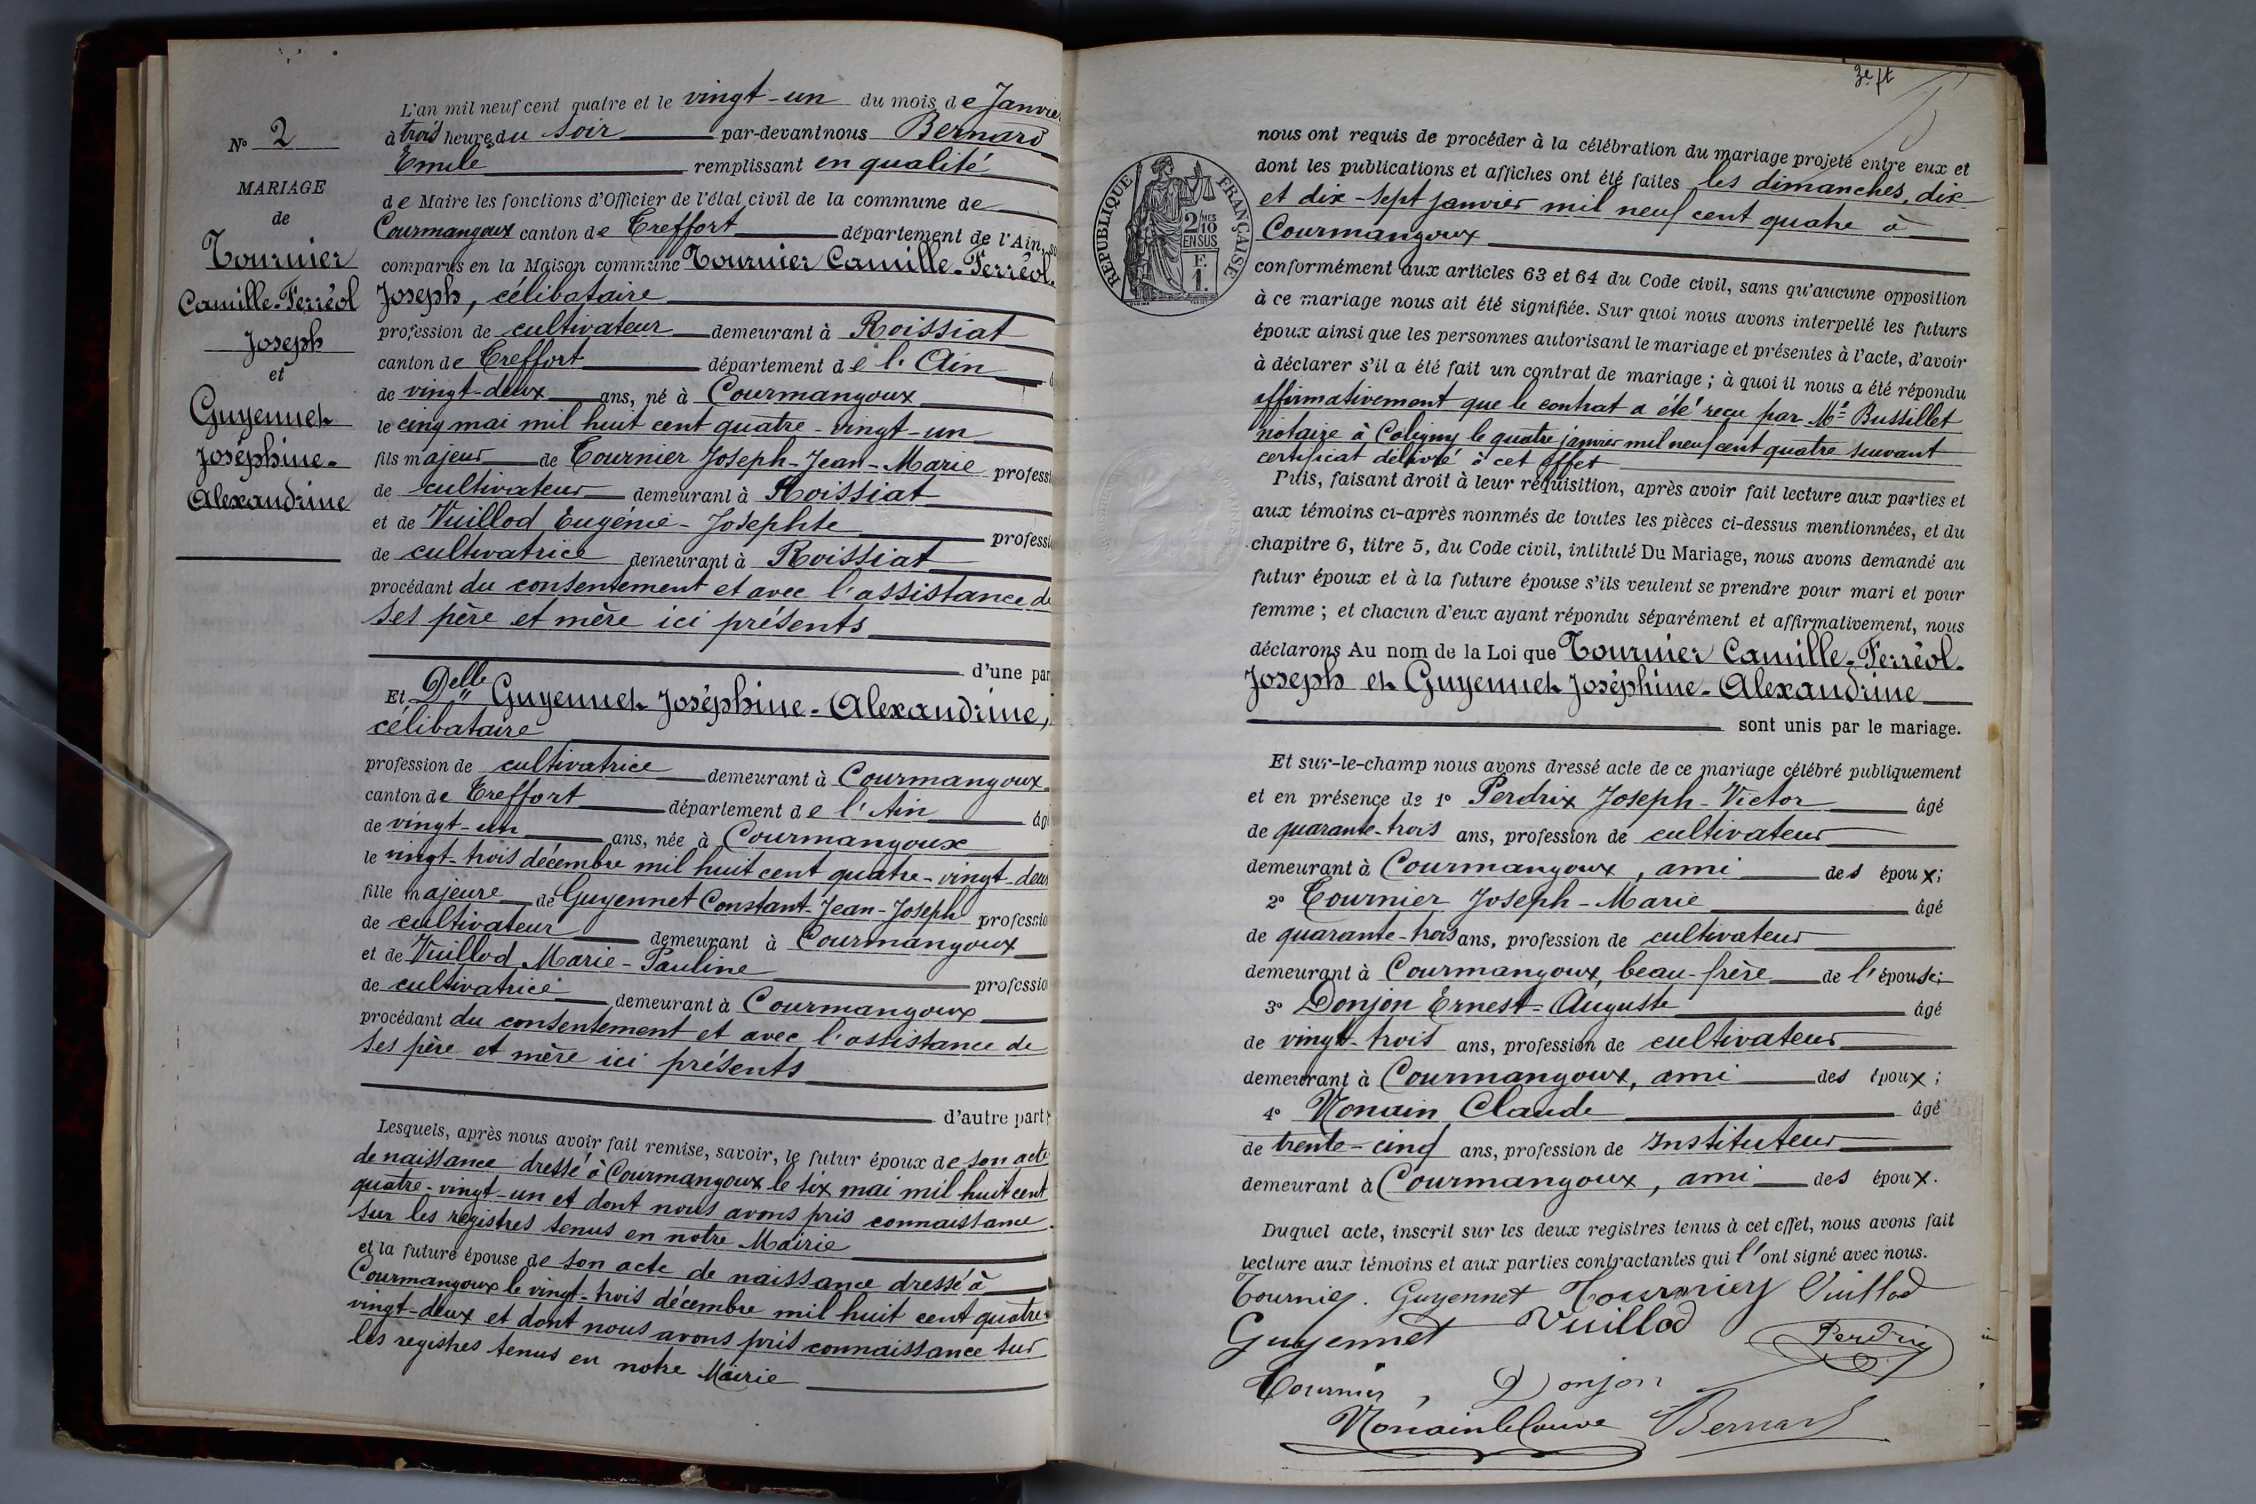 N° 2
MARIAGE
de
Tournier
Camille-Ferréol
Joseph
et
Guyennet
Joséphine-
Alexandrine
L'an mil neuf cent quatre et le vingt-un du mois de Janvier
à trois heures du soir par-devant nous Bernard
Emile remplissant en qualité
de Maire les fonctions d'Officier de l'état civil de la commune de
Courmangoux canton de Treffort département de l'Ain, so
comparus en la Maison commune Tournier Camille-Ferréol-
Joseph, célibataire
profession de cultivateur demeurant à Roissiat
canton de Treffort département de l'Ain
de vingt-deux ans, né à Courmangoux
le cinq mai mil huit cent quatre-vingt-un
fils majeur de Tournier Joseph-Jean-Marie professi
de cultivateur demeurant à Roissiat
et de Vuillod Eugénie-Josephte professi
de cultivatrice demeurant à Roissiat
procédant du consentement et avec l'assistance de
ses père et mère ici présents
d'une par
Et Delle Guyennet Joséphine-Alexandrine,
célibataire
profession de cultivatrice demeurant à Courmangoux
canton de Treffort département de l'Ain âg
de vingt-un ans, née à Courmangoux
le vingt-trois décembre mil huit cent quatre-vingt-deux
fille majeure de Guyennet Constant-Jean-Joseph professio
de cultivateur demeurant à Courmangoux
et de Vuillod Marie-Pauline professio
de cultivatrice demeurant à Courmangoux
procédant du consentement et avec l'assistance de
ses père et mère ici présents
d'autre part
Lesquels, après nous avoir fait remise, savoir, le futur époux de son acte
de naissance dressé à Courmangoux le six mai mil huit cent
quatre-vingt-un et dont nous avons pris connaissance
sur les registres tenus en notre Mairie
et la future épouse de son acte de naissance dressé à
Courmangoux le vingt-trois décembre mil huit cent quatre-
vingt-deux et dont nous avons pris connaissance sur
les registres tenus en notre Mairie
3e ft
RÉPUBLIQUE FRANÇAISE
2/10
EN SUS
F.
1.
nous ont requis de procéder à la célébration du mariage projeté entre eux et
dont les publications et affiches ont été faites les dimanches, dix
et dix-sept janvier mil neuf cent quatre à
Courmangoux
conformément aux articles 63 et 64 du Code civil, sans qu'aucune opposition
à ce mariage nous ait été signifiée. Sur quoi nous avons interpellé les futurs
époux ainsi que les personnes autorisant le mariage et présentes à l'acte, d'avoir
à déclarer s'il a été fait un contrat de mariage ; à quoi il nous a été répondu
affirmativement que le contrat a été reçu par Me Bussillet
notaire à Coligny le quatre janvier mil neuf cent quatre suivant
certificat délivré à cet effet
Puis, faisant droit à leur réquisition, après avoir fait lecture aux parties et
aux témoins ci-après nommés de toutes les pièces ci-dessus mentionnées, et du
chapitre 6, titre 5, du Code civil, intitulé Du Mariage, nous avons demandé au
futur époux et à la future épouse s'ils veulent se prendre pour mari et pour
femme ; et chacun d'eux ayant répondu séparément et affirmativement, nous
déclarons Au nom de la Loi que Tournier Camille-Ferréol-
Joseph et Guyennet Joséphine-Alexandrine
sont unis par le mariage.
Et sur-le-champ nous avons dressé acte de ce mariage célébré publiquement
et en présence de 1° Perdrix Joseph-Victor âgé
de quarante-trois ans, profession de cultivateur
demeurant à Courmangoux, ami des époux;
2° Tournier Joseph-Marie âgé
de quarante-trois ans, profession de cultivateur
demeurant à Courmangoux, beau-frère de l'épouse;
3° Donjon Ernest-Auguste âgé
de vingt-trois ans, profession de cultivateur
demeurant à Courmangoux, ami des époux;
4° Nonain Claude âgé
de trente-cinq ans, profession de Instituteur
demeurant à Courmangoux, ami des époux.
Duquel acte, inscrit sur les deux registres tenus à cet effet, nous avons fait
lecture aux témoins et aux parties contractantes qui l'ont signé avec nous.
Tournier. Guyennet Tournier Vuillod
Guyennet Vuillod Perdrix
Tournier, Donjon
Nonain Claude EBernard